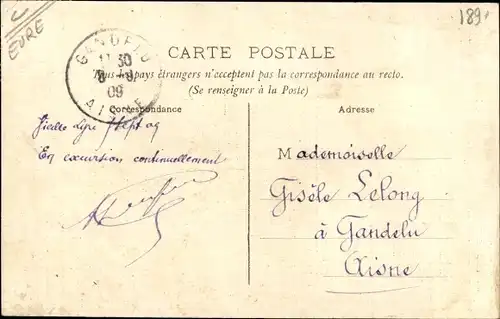 EURE
189
GANDELU
11 30
8 - 9
09
AISNE
CARTE POSTALE
Tous les pays étrangers n'acceptent pas la correspondance au recto.
(Se renseigner à la Poste)
Correspondance
Adresse
Vieille Lyre 7 Sept 09
En excursion continuellement
Mademoiselle
Gisèle Lelong
à Gandelu
Aisne